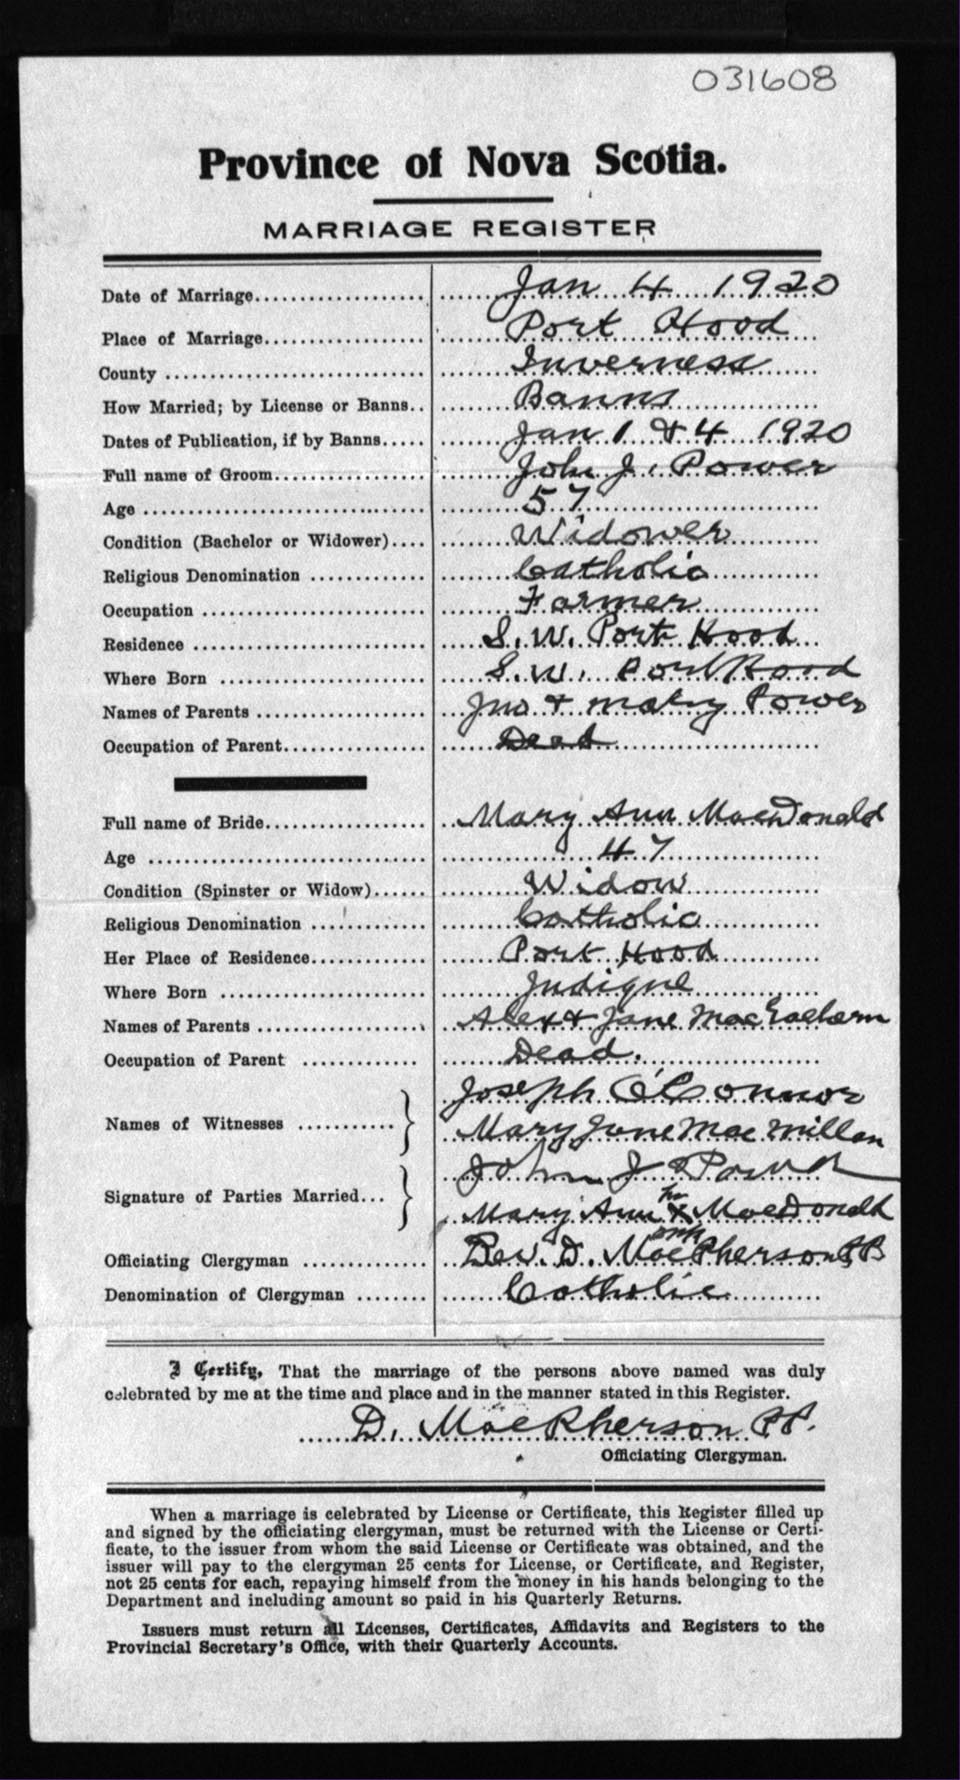 031608
Province of Nova Scotia.
MARRIAGE REGISTER
Date of Marriage Jan 4 1920
Place of Marriage Port Hood
County Inverness
How Married; by License or Banns Banns
Dates of Publication, if by Banns Jan 1 & 4 1920
Full name of Groom John J. Power
Age 57
Condition (Bachelor or Widower) Widower
Religious Denomination Catholic
Occupation Farmer
Residence S. W. Port Hood
Where Born S. W. Port Hood
Names of Parents Jno & Mary Power
Occupation of Parent Dead
Full name of Bride Mary Ann MacDonald
Age 47
Condition (Spinster or Widow) Widow
Religious Denomination Catholic
Her Place of Residence Port Hood
Where Born Judique
Names of Parents Alex & Jane MacEachern
Occupation of Parent Dead.
Names of Witnesses Joseph O'Connor
Mary Jane MacMillan
Signature of Parties Married John J Power
Mary Ann her X mark MacDonald
Officiating Clergyman Rev. D. MacPherson PP
Denomination of Clergyman Catholic
I Certify, That the marriage of the persons above named was duly
celebrated by me at the time and place and in the manner stated in this Register.
D. MacPherson PP.
Officiating Clergyman.
When a marriage is celebrated by License or Certificate, this Register filled up
and signed by the officiating clergyman, must be returned with the License or Certi-
ficate, to the issuer from whom the said License or Certificate was obtained, and the
issuer will pay to the clergyman 25 cents for License, or Certificate, and Register,
not 25 cents for each, repaying himself from the money in his hands belonging to the
Department and including amount so paid in his Quarterly Returns.
Issuers must return all Licenses, Certificates, Affidavits and Registers to the
Provincial Secretary's Office, with their Quarterly Accounts.